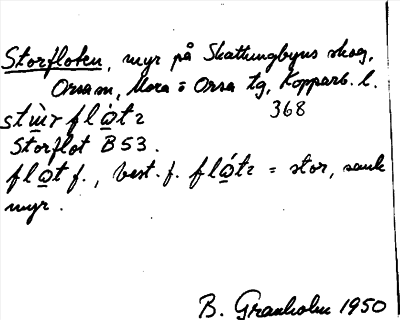 Storfloten, myr på Skattungbyns skog,
Orsa sn, Mora o Orsa tg, Kopparb. l.
368
Storflot B 53.
flo̲t f., best. f. = stor, sank
myr.
B. Granholm 1950